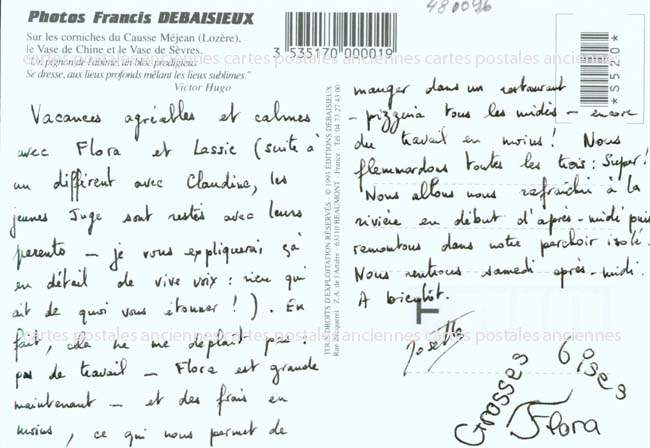 Photos Francis DEBAISIEUX
Sur les corniches du Causse Méjean (Lozère),
le Vase de Chine et le Vase de Sèvres.
"Un pignon de l'abîme, un bloc prodigieux
Se dresse, aux lieux profonds mêlant les lieux sublimes."
Victor Hugo
3 535170 000019
480096
*S5480*
cartes postales anciennes cartes postales anciennes cartes postales anciennes
Vacances agréables et calmes
avec Flora et Lassie (suite à
un différent avec Claudine, les
jeunes Juge sont restés avec leurs
parents – je vous expliquerai çà
en détail de vive voix : rien qui
ait de quoi vous étonner !). En
fait, cela ne me déplait pas :
pas de travail – Flora est grande
maintenant – et des frais en
moins, ce qui nous permet de
TOUS DROITS D'EXPLOITATION RÉSERVÉS - © 1993 ÉDITIONS DEBAISIEUX
Rue Becquerel - Z.A. de l'Artière - 63110 BEAUMONT - France - Tél. 04 73 27 43 00
manger dans un restaurant
- pizzeria tous les midis - encore
du travail en moins ! Nous
flemmardons toutes les trois : Super !
Nous allons nous rafraîchir à la
rivière en début d'après-midi puis
remontons dans notre perchoir isolé.
Nous rentrons samedi après-midi.
A bientôt.
cartes postales anciennes cartes postales anciennes cartes postales anciennes
Josette
Grosses
Bises
Flora